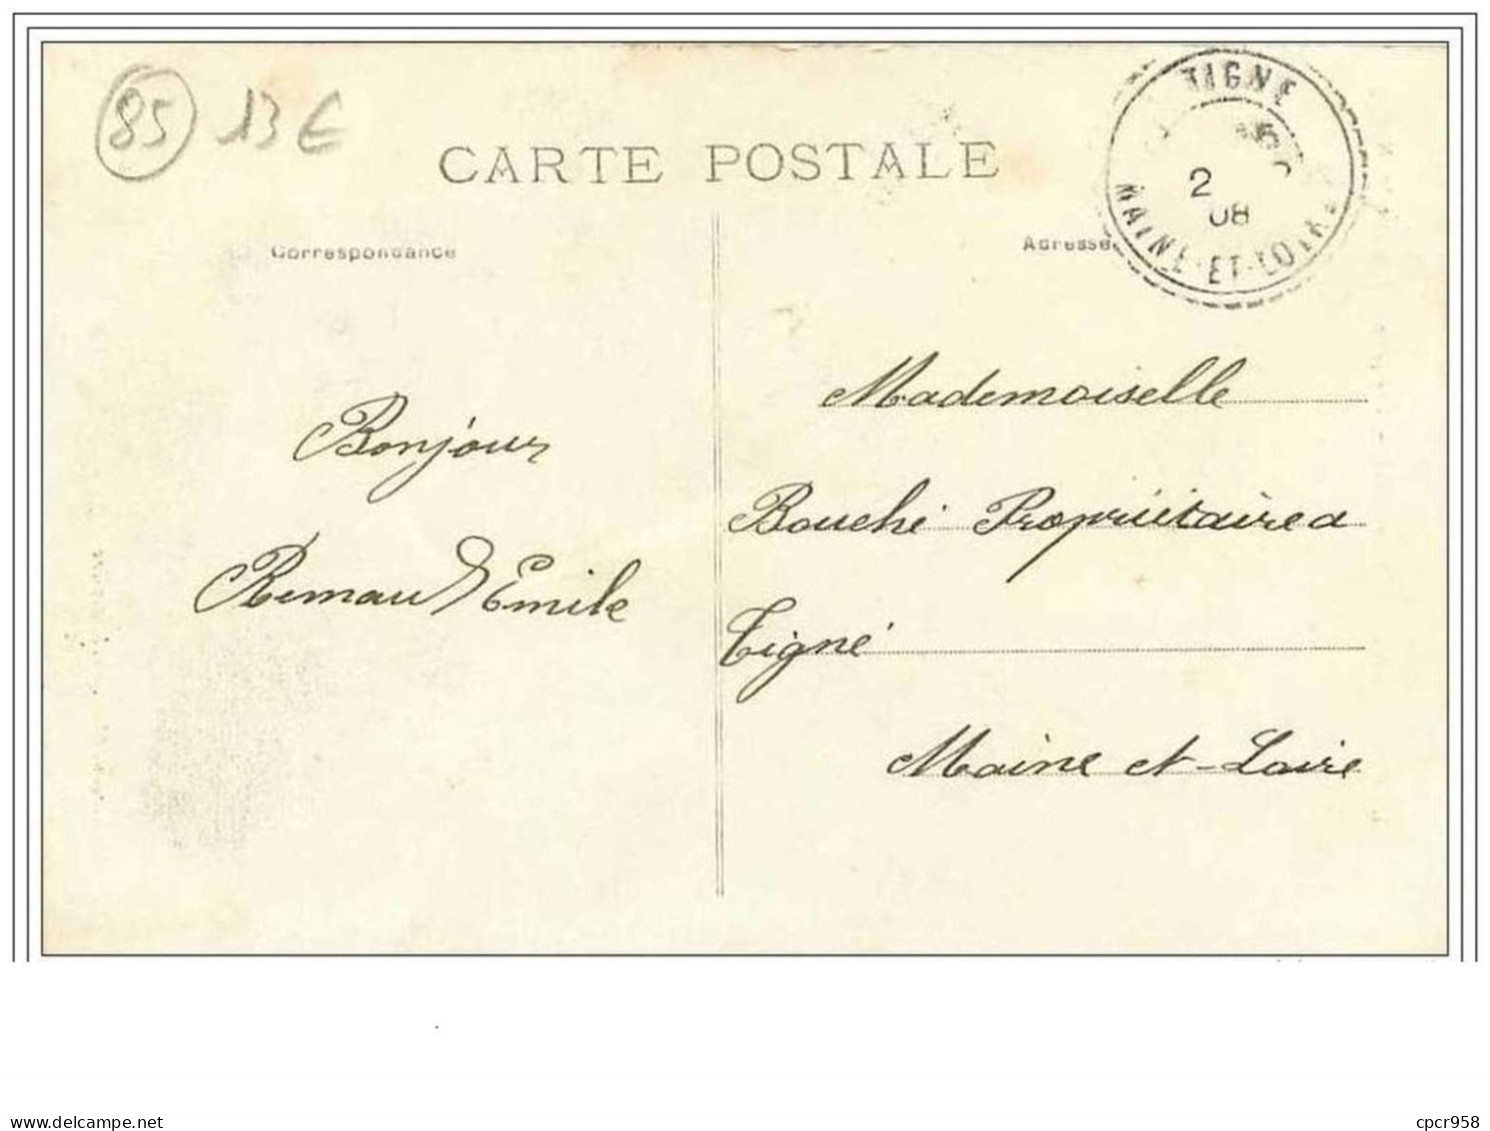 85 13 €
CARTE POSTALE
Correspondance
Adresse
TIGNE
2
08
MAINE-ET-LOIRE
Bonjour
Renaud Emile
Mademoiselle
Bouché Propriétaire a
Tigné
Maine et-Loire
delcampe.net
cpcr958